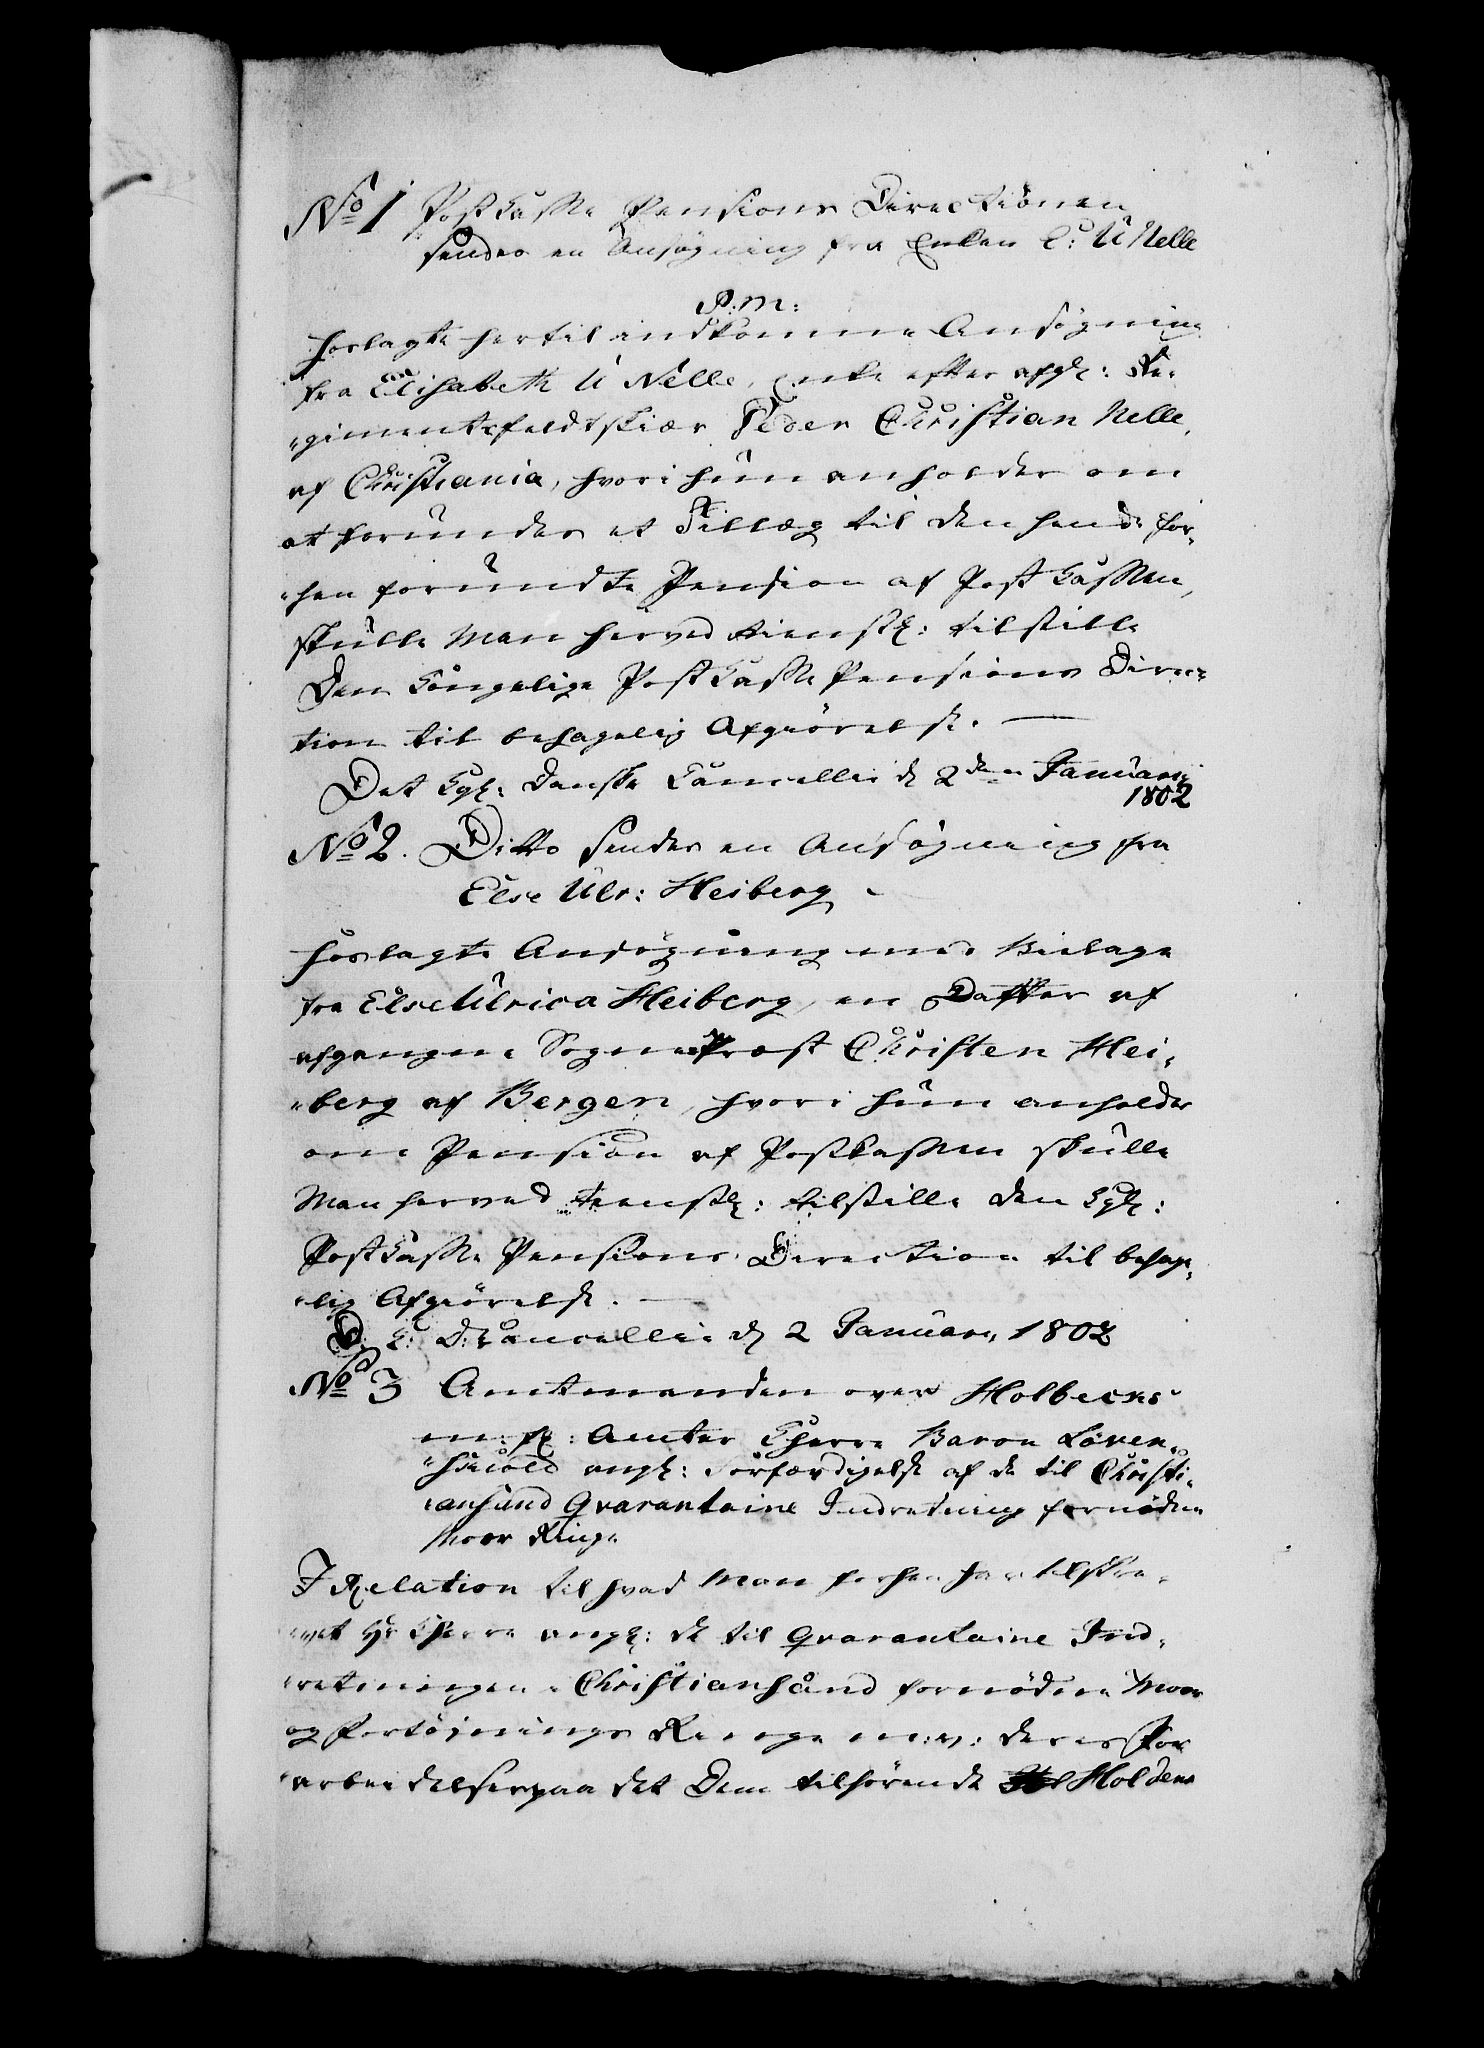 No 1 Postkasse Pensions Directionen
sendes en Ansøgning fra Enken E: U Nelle
P.M:
Hoslagte hertil indkomne Ansøgning
fra Elisabeth U Nelle, Enke efter afgl: Re-
"gimentsfeldtskiær Peder Christian Nelle,
af Christiania, hvori hun anholder om
at forundes et Tillæg til den hende for-
"hen forundte Pension af Post Cassen,
skulle Man herved tienstl: tilstille
Den Kongelige PostKasse Pensions Direc-
tion til behagelig Afgiørelse. —
Det Kgl: Danske Cancellie d 2den Januari
1802
No 2. Ditto sendes en Ansøgning fra
Else Ulr: Heiberg
Hoslagte Ansøgning med Bielage
fra Else Ulrica Heiberg, en Datter af
afgangne Sogne Præst Christen Hei-
"berg af Bergen, hvori hun anholder
om Pension af Postkassen skulle
Man herved tienstl: tilstille den Kgl:
PostKasse Pensions Direction til behage-
"lig Afgiørelse. —
D. K: D: Cancellie d 2 Januari 1802
No 3 Amtmanden over Holbecks
m: fl: Amter Hr Baron Löven-
"skiold angl: Forfærdigelse af de til Christi-
"ansand Qvarantaine Indretning fornødne
Moor Ringe
I Relation til hvad Man forhen har tilskre-
"vet Hr angl: de til Qvarantaine Ind-
"retningen i Christiansand fornødne Moor
og Fortøinings Ringe m: v: deres For
"arbeidelse paa det Dem tilhørende Holdens